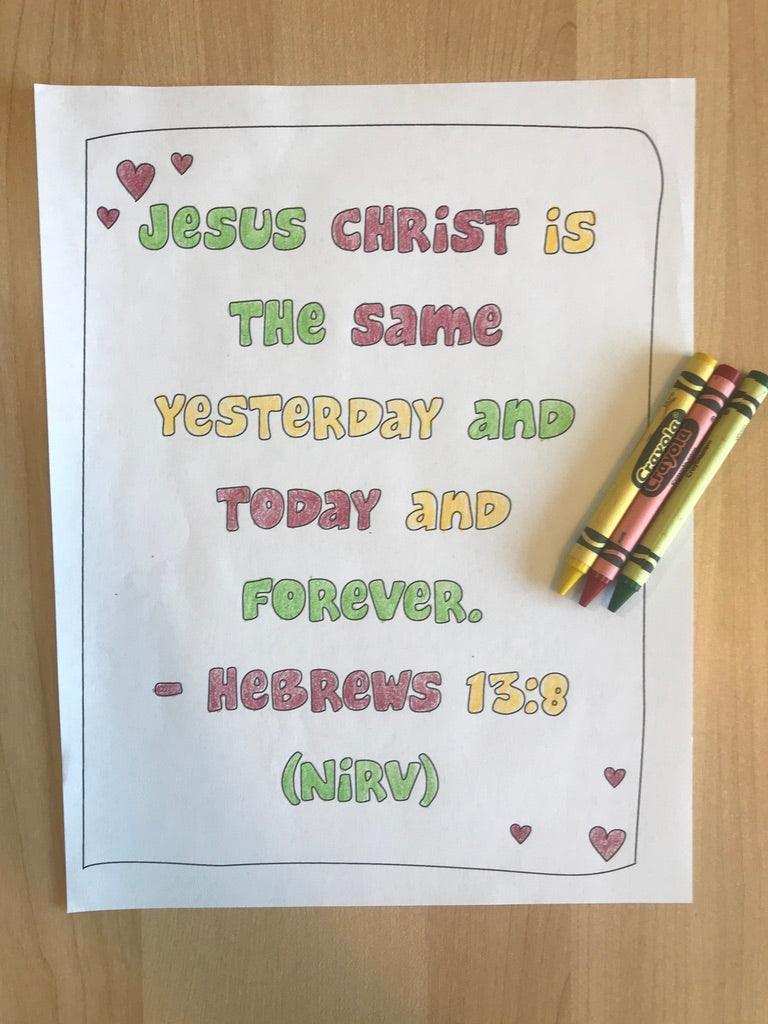 Jesus CHRiST is
THe same
YESTERDAY and
TODAY and
FOREVER.
- HEBREWS 13:8
(NiRV)
Crayola
Crayola